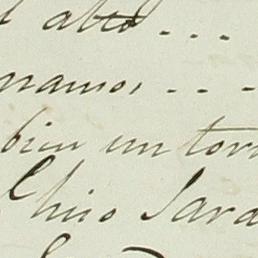 l alto...
namos...
bien un torn
Chino Sara